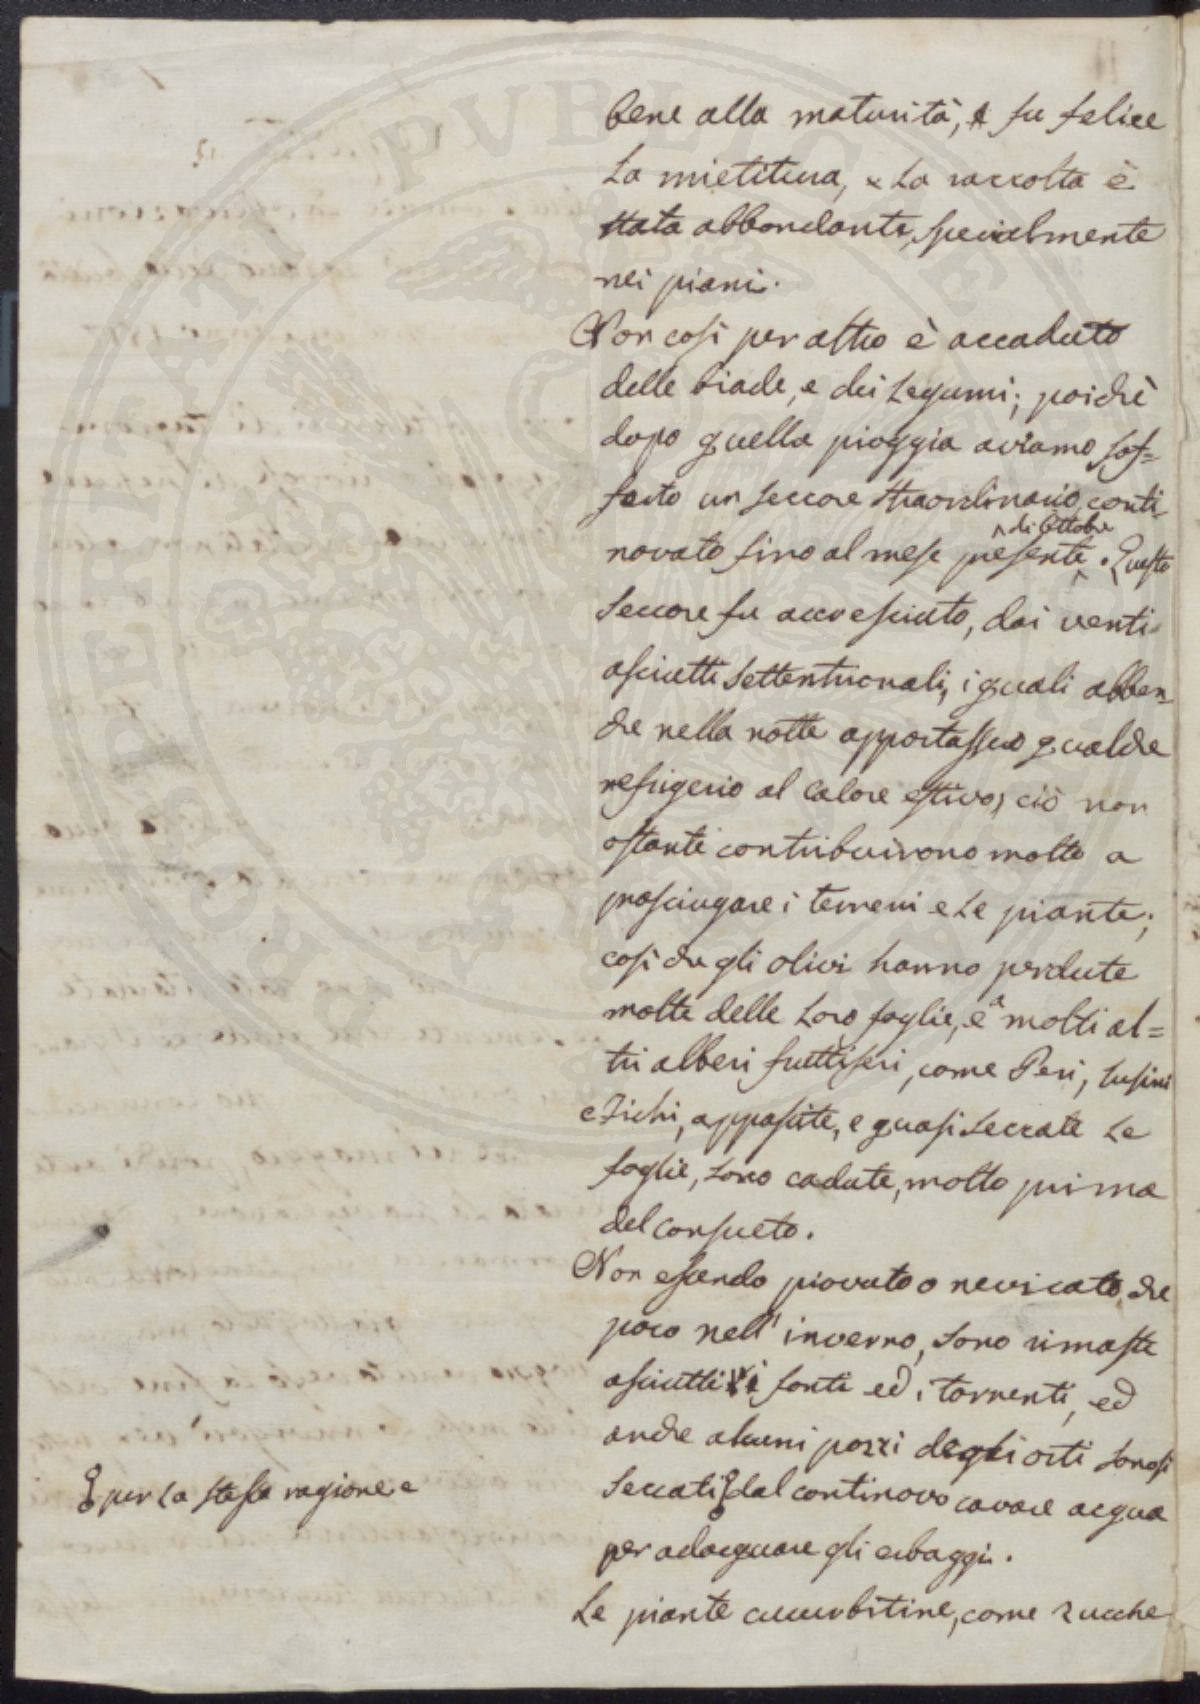 bene alla maturità, e fu felice
la mietitura, e la raccolta è
stata abbondante, specialmente
nei piani.
Non così per altro è accaduto
delle biade, e dei legumi; poichè
dopo quella pioggia aviamo sof=
ferto un seccore straordinario, conti-
di Ottobre
novato fino al mese presente. Questo
seccore fu accresciuto, dai venti
asciutti settentrionali, i quali abben-
che nella notte apportassero qualche
refrigerio al calore estivo, ciò non
ostante contribuirono molto a
prosciugare i terreni e le piante;
così che gli olivi hanno perdute
molte delle loro foglie, e a molti al=
tri alberi fruttiferi, come Peri, susini
e Fichi, appassite, e quasi seccate le
foglie, sono cadute, molto prima
del consueto.
Non essendo piovuto o nevicato, che
poco nell'inverno, sono rimaste
asciutti i fonti ed i torrenti, ed
anche alcuni pozzi degli orti sonosi
seccati dal continovo cavare acqua
per adacquare gli erbaggi.
Le piante cucurbitine, come zucche
per la stessa ragione e
PROSPERITATI PUBLICAE